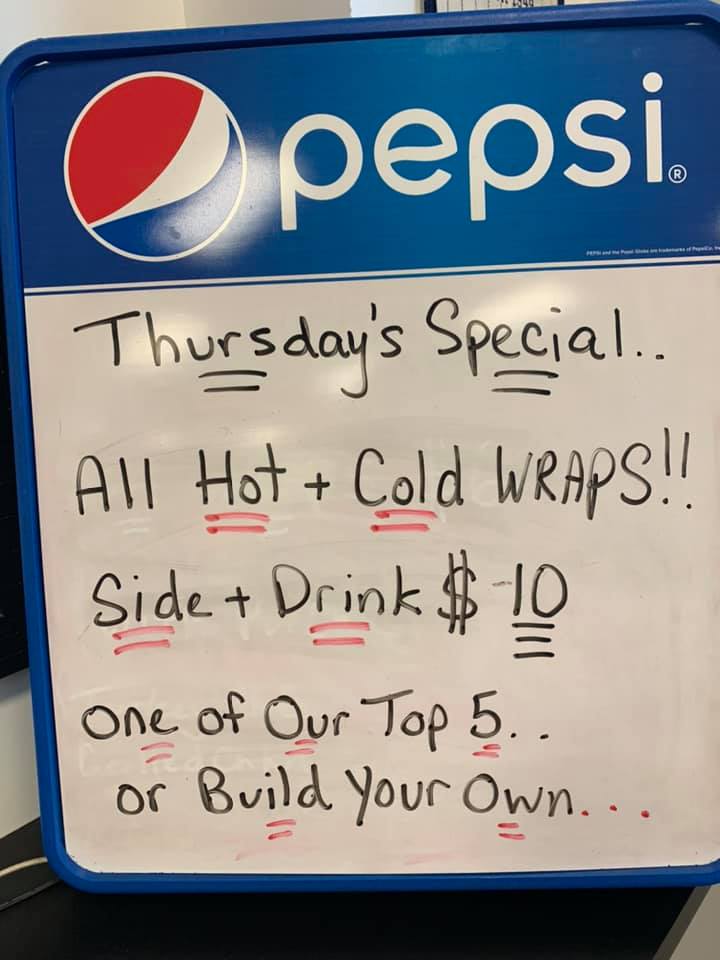 pepsi®
PEPSI and the Pepsi Globe are trademarks of PepsiCo, Inc.
Thursday's Special..
All Hot + Cold WRAPS!!
Side + Drink $ 10
One of Our Top 5..
or Build Your Own...